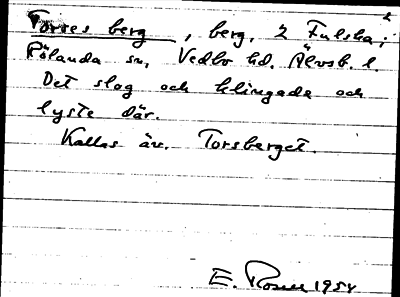 Torres berg, berg, 2 Fulska,
Rölanda sn, Vedbo hd. Älvsb. l.
Det slog och klingade och
lyste där.
Kallas äv. Torsberget.
E. Rosen 1954